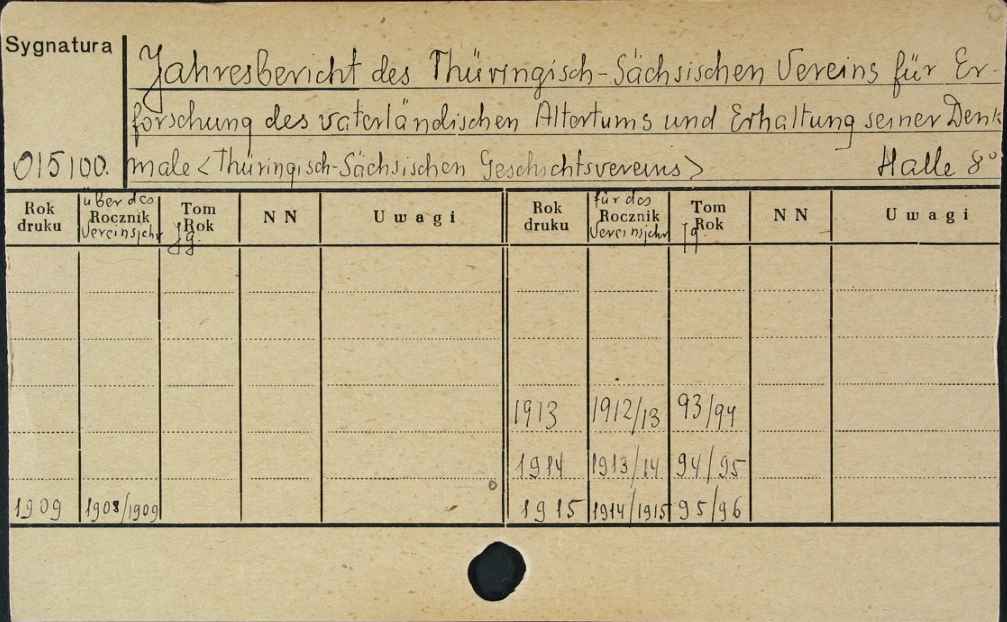 Sygnatura
Jahresbericht des Thüringisch-Sächsischen Vereins für Er-
forschung des vaterländischen Altertums und Erhaltung seiner Denk
015100. male <Thüringisch-Sächsischen Geschichtsvereins> Halle 8°
über das für das
Rok druku Rocznik Tom Rok NN Uwagi Rok druku Rocznik Tom Rok NN Uwagi
Vereinsjahr Jg. Vereinsjahr Jg.
1913 1912/13 93/94
1914 1913/14 94/95
1909 1908/1909 1915 1914/1915 95/96